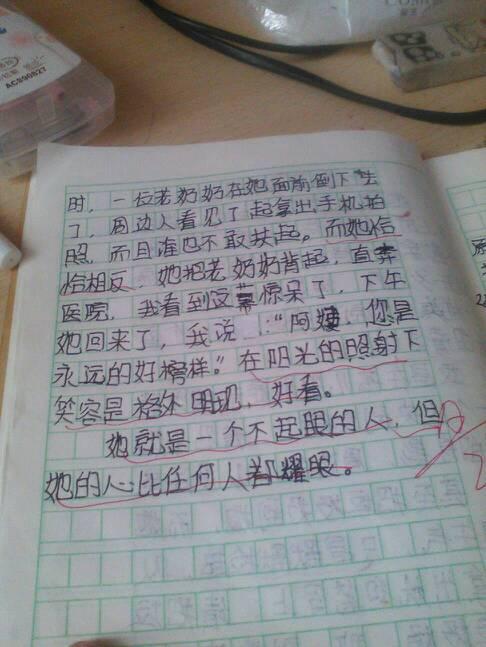 时，一位老奶奶在她面前倒下去
了，周边人看见了起拿出手机拍
照，而且谁也不敢扶起。而她恰
恰相反，她把老奶奶背起，直奔
医院，我看到这幕惊呆了，下午
她回来了，我说：“阿姨，您是
永远的好榜样。”在阳光的照射下
笑容是格外明现，好看。
她就是一个不起眼的人，但
她的人比任何人都耀眼。
ACS90827